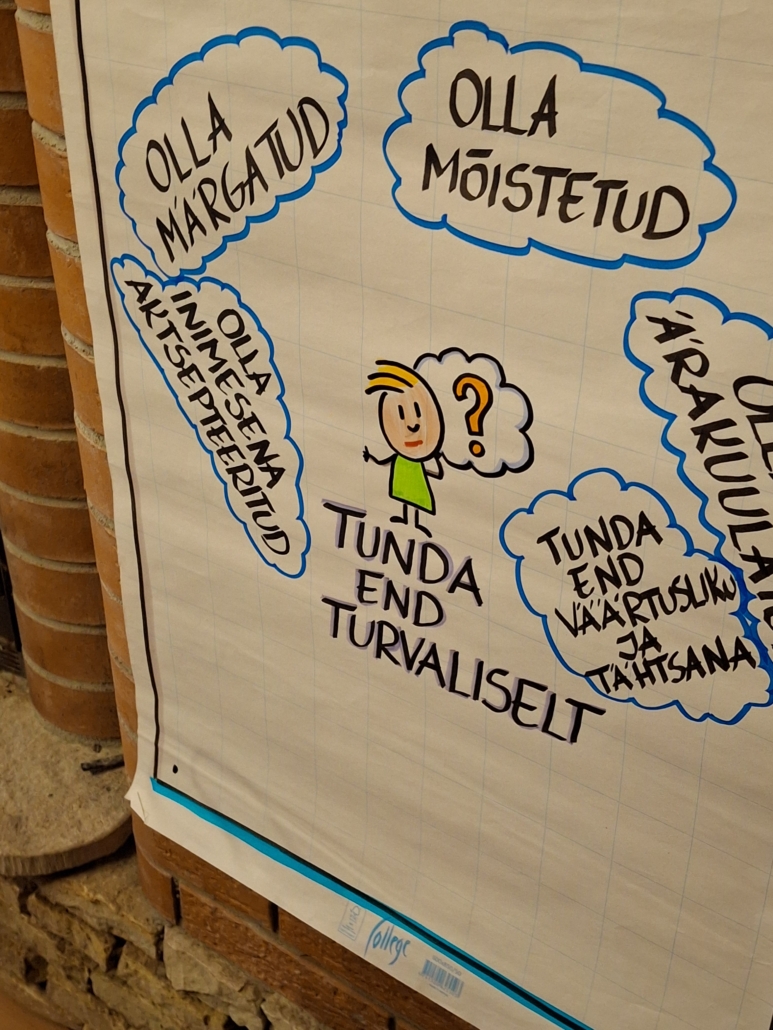 OLLA
MÄRGATUD
OLLA
MÕISTETUD
OLLA
INIMESENA
AKTSEPTEERITUD
?
TUNDA
END
TURVALISELT
TUNDA
END
VÄÄRTUSLIKU
JA
TÄHTSANA
College